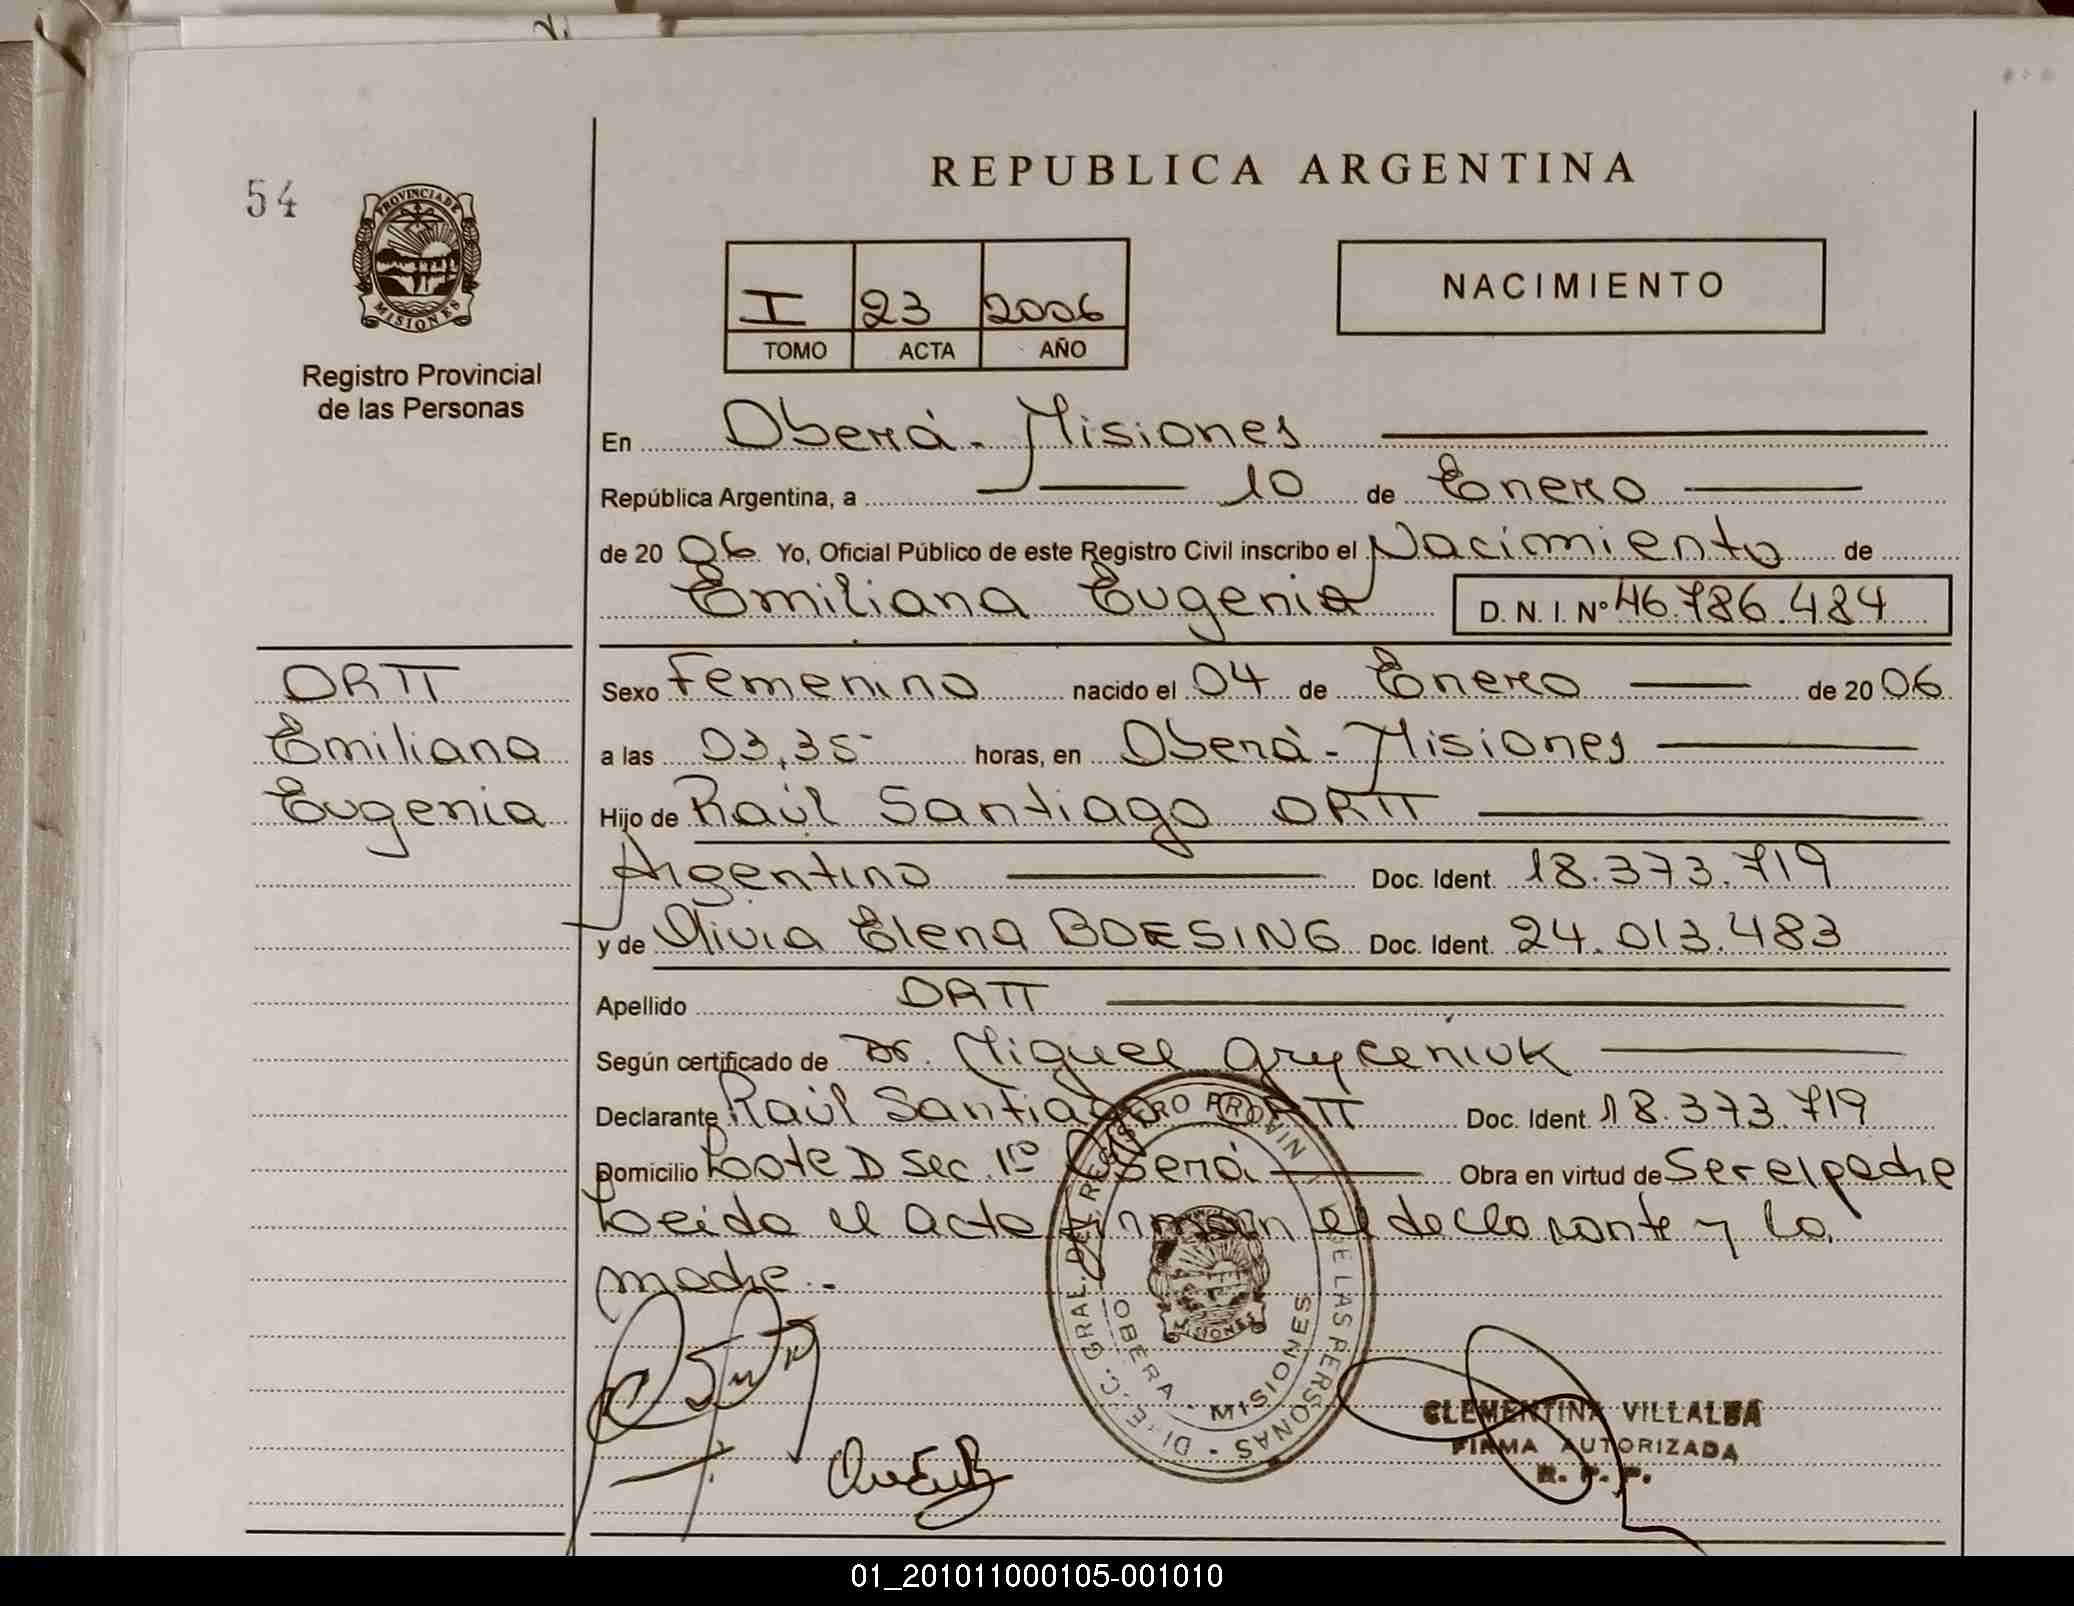 54
PROVINCIA DE
MISIONES
Registro Provincial
de las Personas
REPUBLICA ARGENTINA
I 23 2006
TOMO ACTA AÑO
NACIMIENTO
En Oberá - Misiones
República Argentina, a 10 de Enero
de 20 06 Yo, Oficial Público de este Registro Civil inscribo el Nacimiento de
Emiliana Eugenia D. N. I. Nº 46.786.484
ORTT
Emiliana
Eugenia
Sexo Femenino nacido el 04 de Enero de 20 06
a las 03,35 horas, en Oberá - Misiones
Hijo de Raúl Santiago ORTT
Argentino Doc. Ident. 18.373.719
y de Olivia Elena BOESING Doc. Ident. 24.013.483
Apellido ORTT
Según certificado de Dr. Miguel Gryceniuk
Declarante Raúl Santiago ORTT Doc. Ident. 18.373.719
Domicilio Lote D Sec. 1ra Oberá Obra en virtud de Ser el padre
Leida el acta firman el declarante y la
madre.-
DIREC. GRAL. DEL REGISTRO PROVIN DE LAS PERSONAS
OBERA - MISIONES
MISIONES
CLEMENTINA VILLALBA
FIRMA AUTORIZADA
R. P. P.
01_201011000105-001010